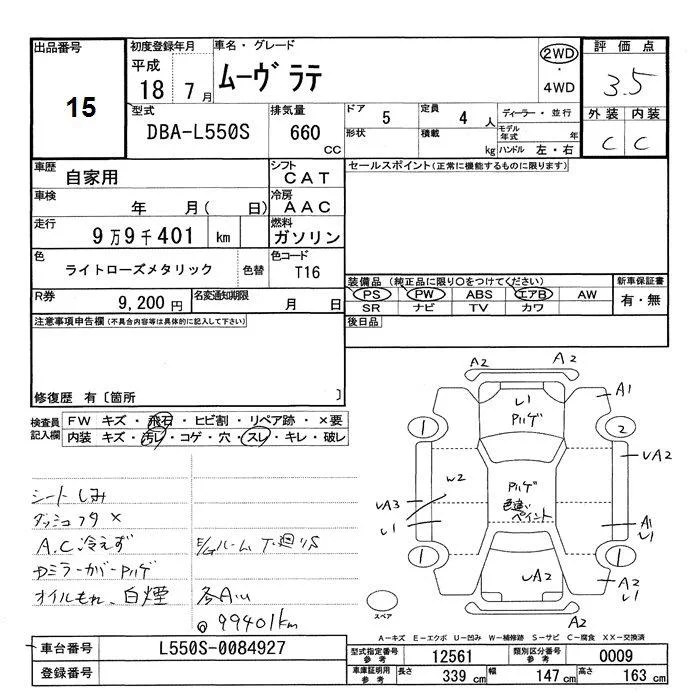 出品番号
15
初度登録年月
平成
18 7月
車名・グレード
ムーヴ ラテ
2WD
・
4WD
評価点
3.5
外装 内装
C C
型式
DBA-L550S
排気量
660
CC
ドア 5
定員 4 人
形状
積載 kg
ディーラー・並行
モデル年式 年
ハンドル 左・右
車歴 自家用
シフト CAT
セールスポイント(正常に機能するものに限ります)
車検 年 月( 日)
冷房 AAC
走行 9万9千401 km
燃料 ガソリン
色 ライトローズメタリック 色替
色コード T16
装備品 (純正品に限り○をつけてください)
新車保証書
PS PW ABS エアB AW
有・無
SR ナビ TV カワ
R券 9,200円
名変通知期限 月 日
後日品
注意事項申告欄(不具合内容等は具体的に記入して下さい)
修復歴 有〔箇所 〕
検査員記入欄
FW キズ・飛石・ヒビ割・リペア跡・×要
内装 キズ・汚レ・コゲ・穴・スレ・キレ・破レ
シートしみ
ダッシュフタ ×
A.C冷えず
Dミラーカバーハゲ
オイルもれ、白煙
E/Gルーム下廻りS
各A.u
@99401km
A2 A2
U1
ハゲ
A1
1
2
W2
UA2
ハゲ
色違い
ペイント
UA3
U1
A1
U1
1
1
UA2
A2
U1
A2
スペア
A-キズ E-エクボ U-凹み W-補修跡 S-サビ C-腐食 XX-交換済
車台番号 L550S-0084927
登録番号
型式指定番号 参考 12561
類別区分番号 参考 0009
車庫証明用 参考 長さ 339cm 幅 147cm 高さ 163cm